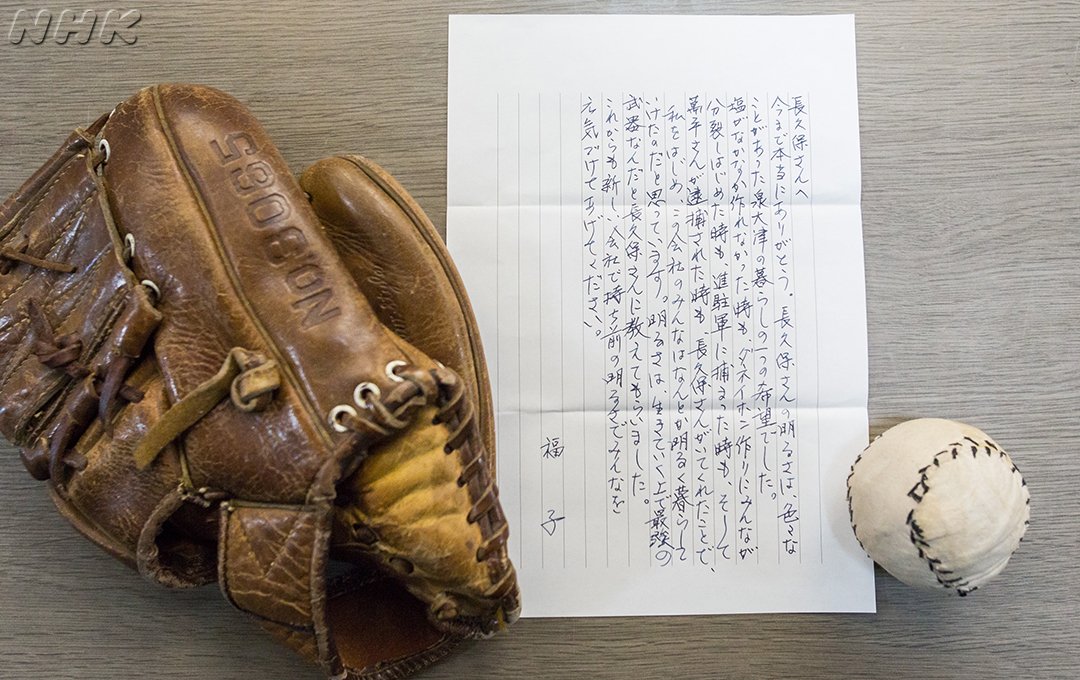 NHK
NOBO65
長久保さんへ
今まで本当にありがとう。長久保さんの明るさは、色々な
ことがあった泉大津の暮らしの一つの希望でした。
塩がなかなか作れなかった時も、ダネイホン作りにみんなが
分裂しはじめた時も、進駐軍に捕まった時も、そして
萬平さんが逮捕された時も、長久保さんがいてくれたことで、
私をはじめ、この会社のみんなはなんとか明るく暮らして
いけたのだと思っています。明るさは生きていく上で最強の
武器なんだと長久保さんに教えてもらいました。
これからも新しい会社で持ち前の明るさでみんなを
元気づけてあげてください。
福子